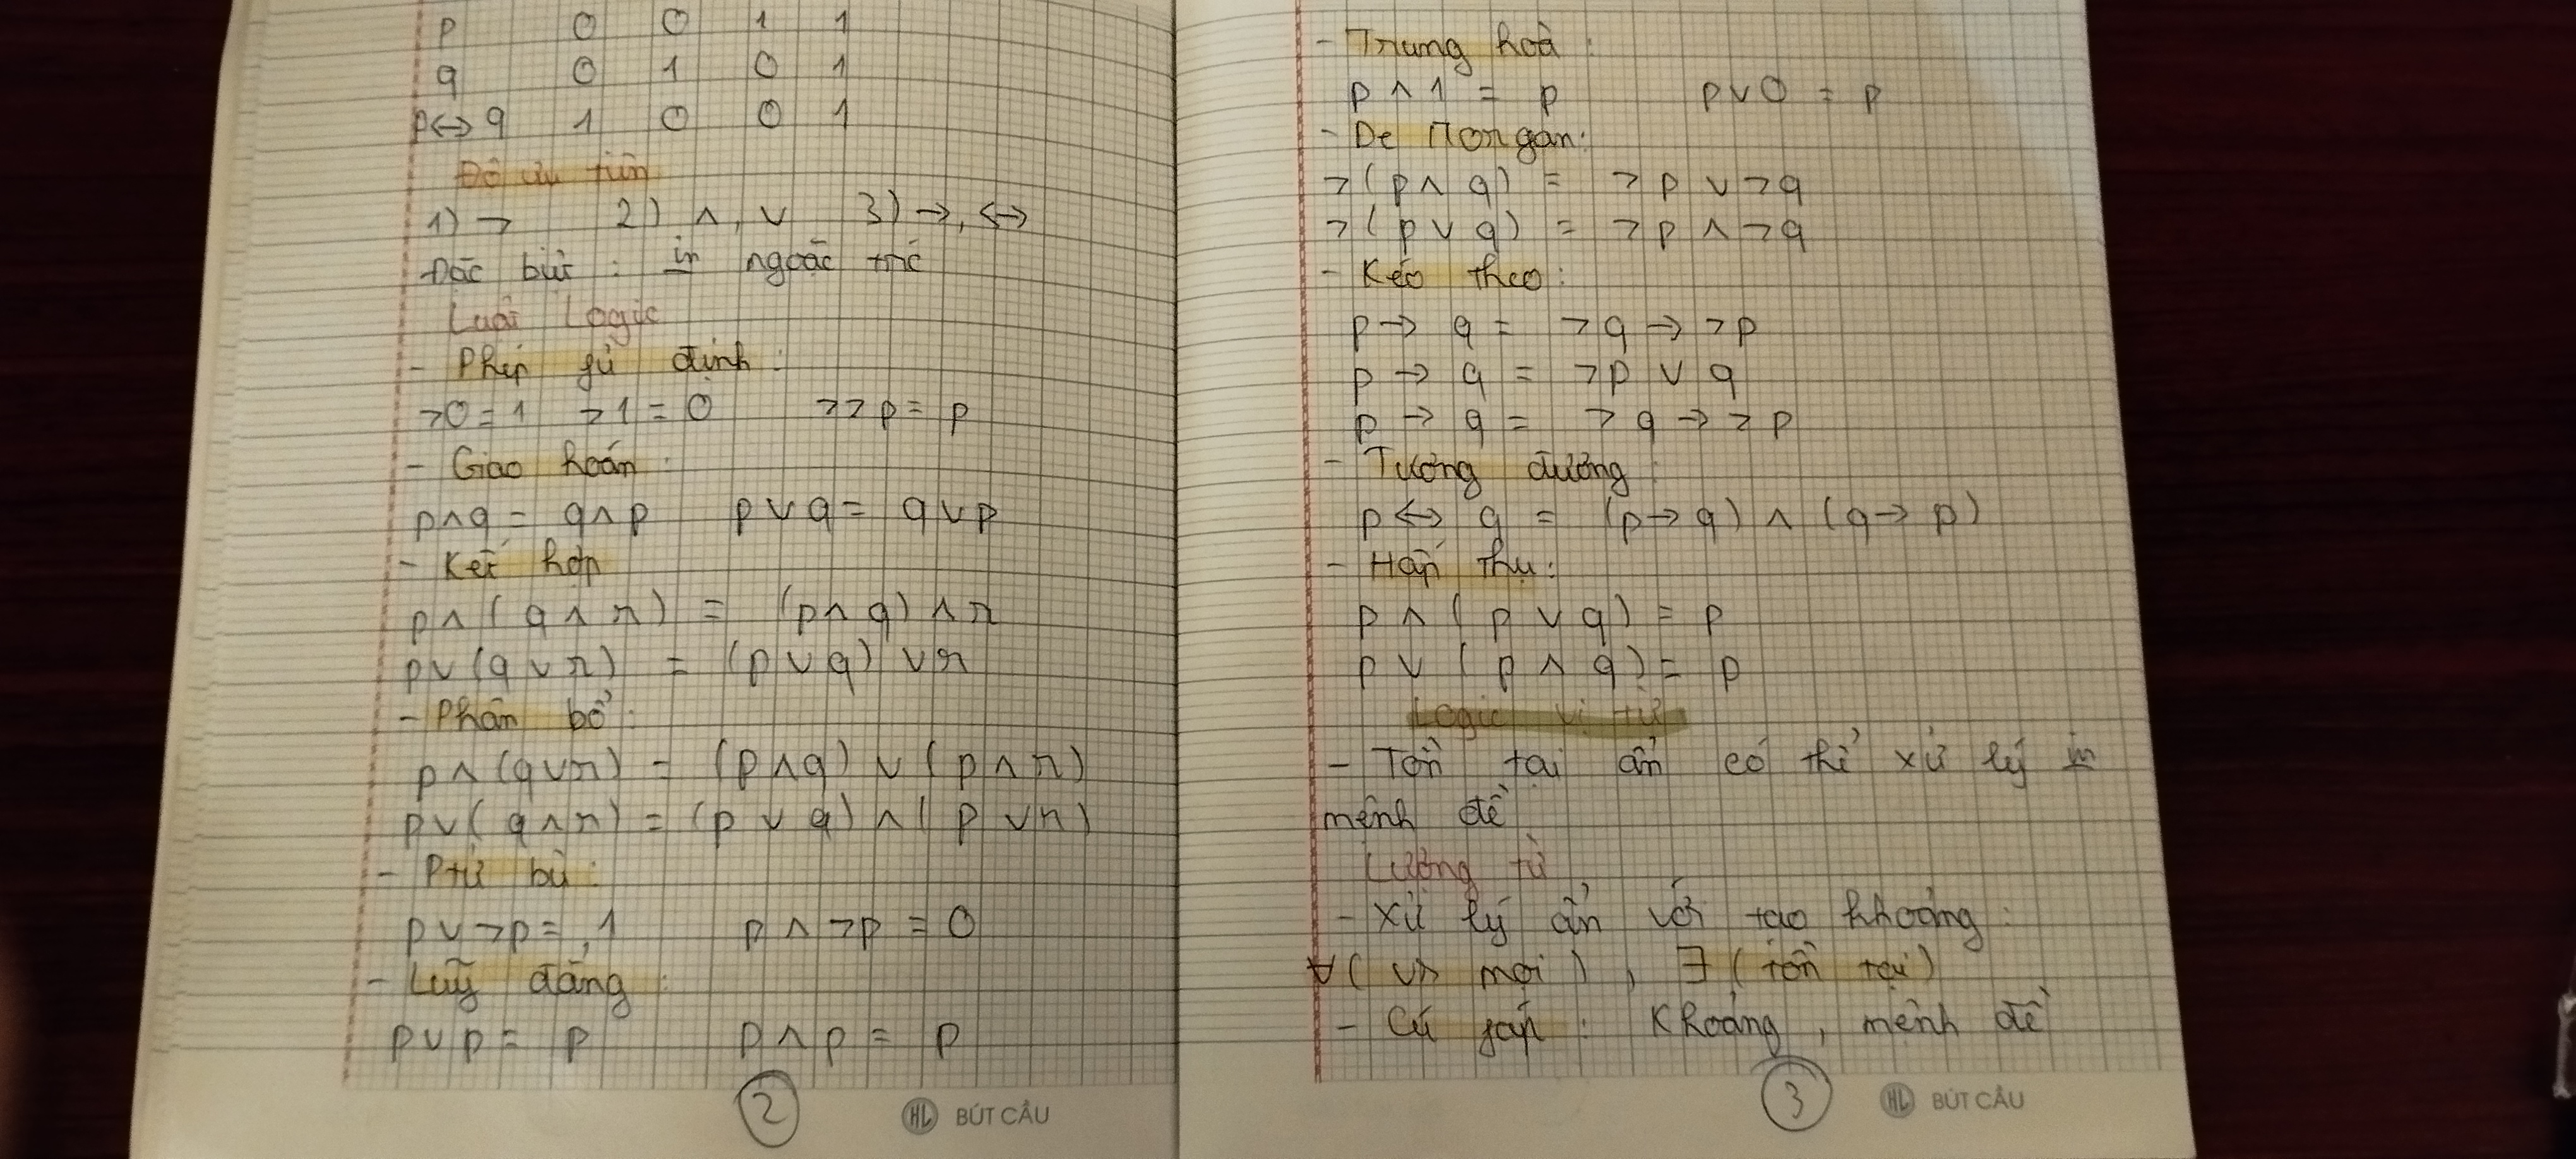 p 0 0 1 1
q 0 1 0 1
p↔q 1 0 0 1
Độ ưu tiên
1) ¬ 2) ∧, ∨ 3) →, ↔
Đặc biệt : in ngoặc trc
Luật Logic
- Phép phủ định :
¬0 = 1 ¬1 = 0 ¬¬p = p
- Giao hoán :
p∧q = q∧p p∨q = q∨p
- Kết hợp
p∧(q∧r) = (p∧q)∧r
p∨(q∨r) = (p∨q)∨r
- Phân bổ :
p∧(q∨r) = (p∧q)∨(p∧r)
p∨(q∧r) = (p∨q)∧(p∨r)
- Ptử bù :
p∨¬p = 1 p∧¬p = 0
- Luỹ đẳng :
p∨p = p p∧p = p
2
HL BÚT CẦU
- Trung hoà :
p∧1 = p p∨0 = p
- De Morgan :
¬(p∧q) = ¬p∨¬q
¬(p∨q) = ¬p∧¬q
- Kéo theo :
p→q = ¬q→¬p
p→q = ¬p∨q
p→q = ¬q→¬p
- Tương đương
p↔q = (p→q)∧(q→p)
- Hấp thụ :
p∧(p∨q) = p
p∨(p∧q) = p
Logic vị từ
- Tồn tại ẩn có thể xử lý in
mệnh đề
Lượng từ
- Xử lý ẩn với tạo khoảng :
∀( vs mọi ) , ∃ ( tồn tại )
- Cú pháp : Khoảng , mệnh đề
3
HL BÚT CẦU